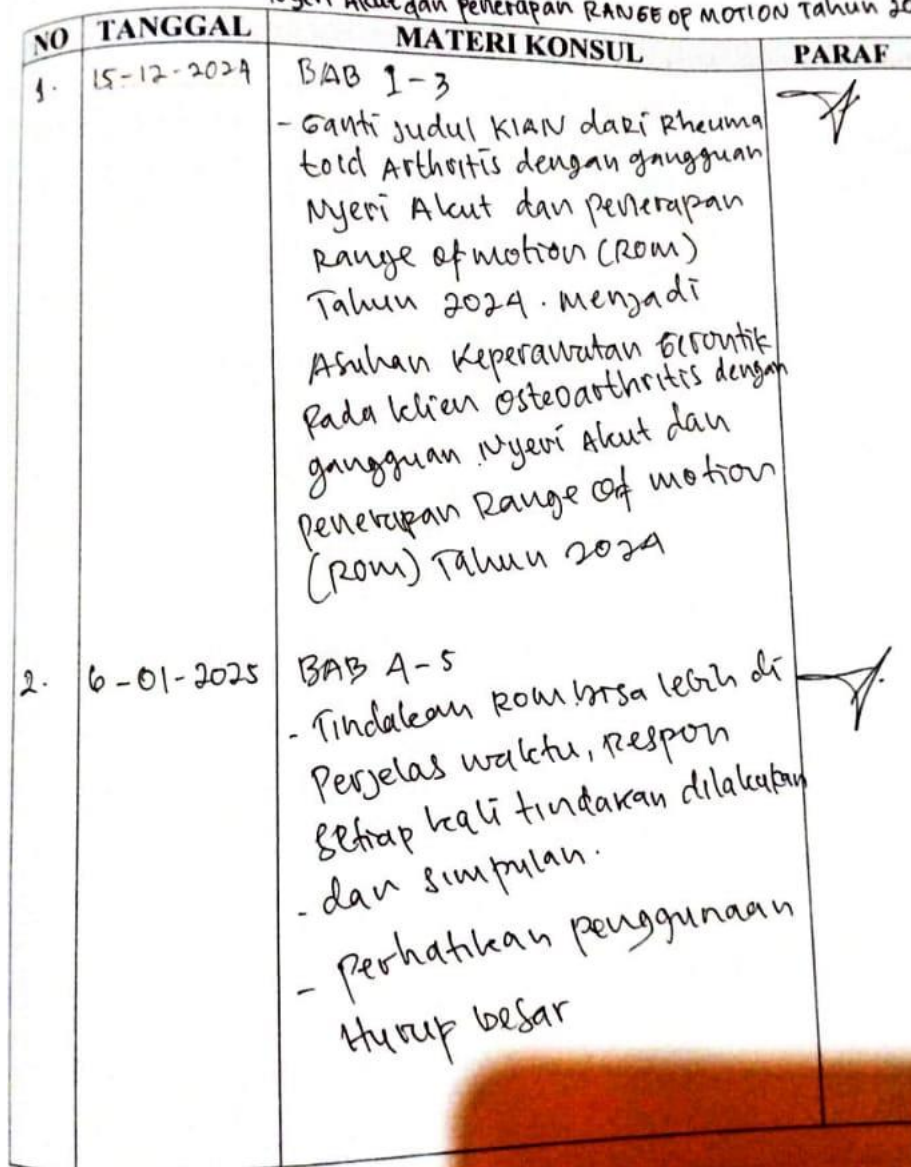 Akut dan penerapan RANGE OF MOTION Tahun 20
NO TANGGAL MATERI KONSUL PARAF
1. 15-12-2024 BAB 1-3
- Ganti judul KIAN dari Rheuma
toid Arthritis dengan gangguan
Nyeri Akut dan penerapan
Range of motion (ROM)
Tahun 2024. menjadi
Asuhan Keperawatan Gerontik
Pada klien Osteoarthritis dengan
gangguan Nyeri Akut dan
penerapan Range of motion
(ROM) Tahun 2024
2. 6-01-2025 BAB 4-5
- Tindakan ROM bisa lebih di
Perjelas waktu, Respon
setiap kali tindakan dilakukan
- dan simpulan.
- perhatikan penggunaan
Hurup besar